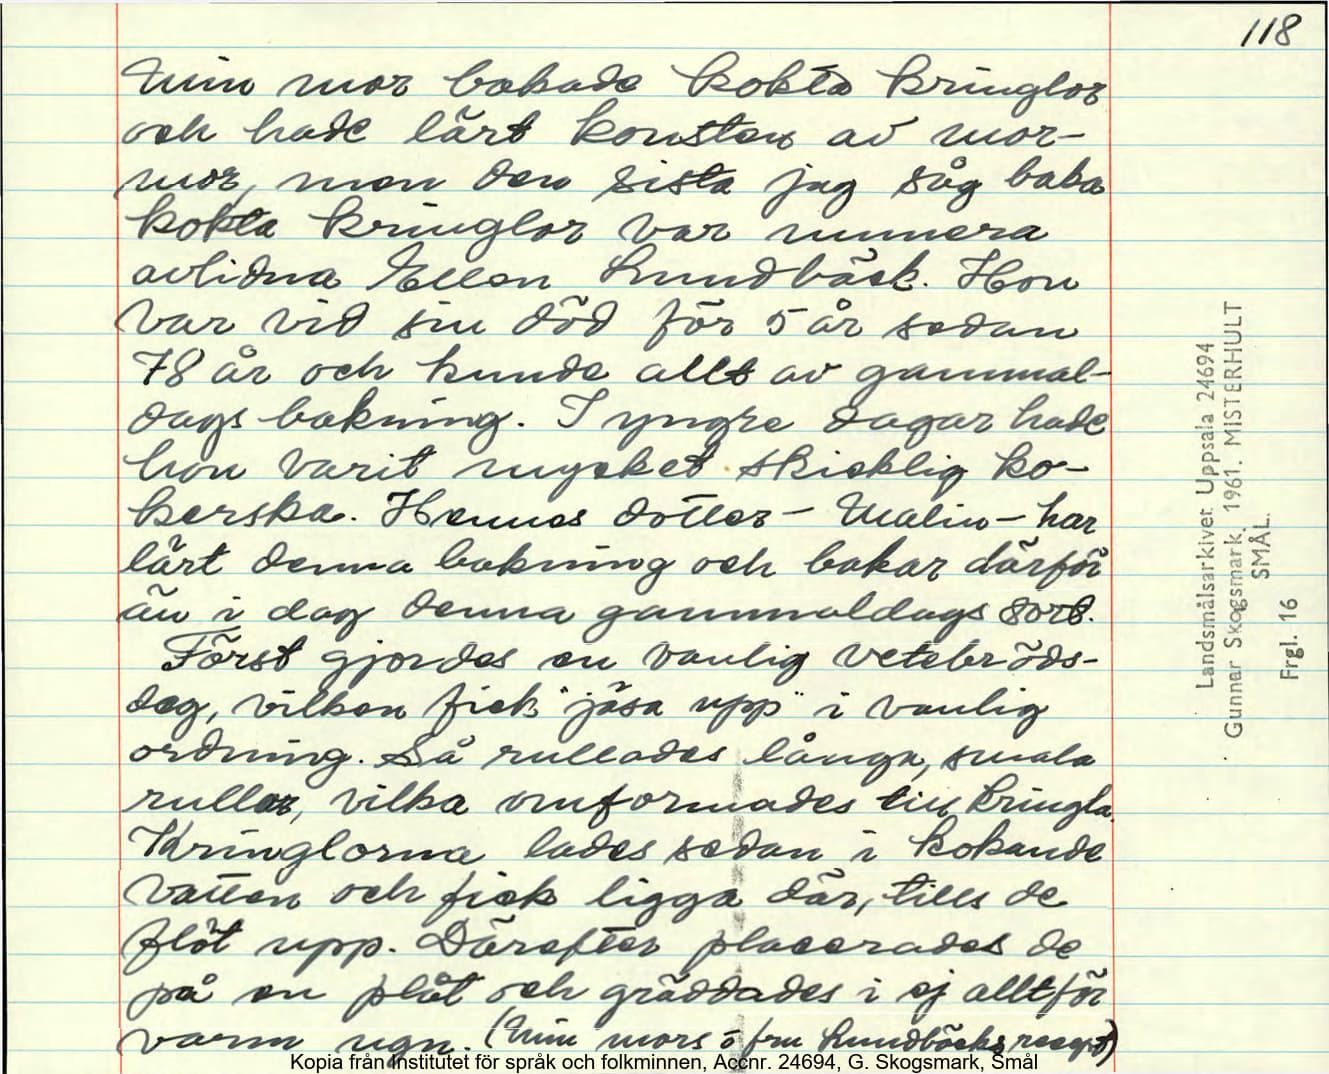 118
Min mor bakade kokta kringlor
och hade lärt konsten av mor-
mor, men den sista jag såg baka
kokta kringlor var numera
avlidna Ellen Lundbäck. Hon
var vid sin död för 5 år sedan
78 år och kunde allt av gammal-
dags bakning. I yngre dagar hade
hon varit mycket skicklig ko-
kerska. Hennes dotter - Malin - har
lärt denna bakning och bakar därför
än i dag denna gammaldags sort.
Först gjordes en vanlig vetebröds-
deg, vilken fick "jäsa upp" i vanlig
ordning. Så rullades långa, smala
rullar, vilka omformades till kringla.
Kringlorna lades sedan i kokande
vatten och fick ligga där, tills de
flöt upp. Därefter placerades de
på en plåt och gräddades i ej alltför
varm ugn. (Min mors o fru Lundbäcks recept)
Landsmålsarkivet Uppsala 24694
Gunnar Skogsmark. 1961. MISTERHULT
SMÅL.
Frgl. 16
Kopia från Institutet för språk och folkminnen, Accnr. 24694, G. Skogsmark, Smål